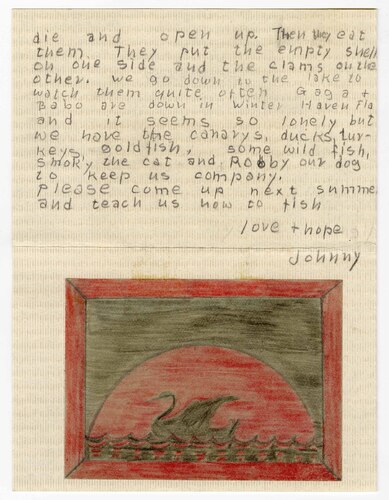 die and open up. Then they eat
them. They put the empty shells
on one side and the clams on the
other. we go down to the lake to
watch them quite often Gaga +
Babo are down in Winter Haven Fla
and it seems so lonely but
we have the canarys, ducks, tur-
keys, goldfish, some wild fish,
Smoky the cat and Robby our dog
to keep us company.
Please come up next summe
and teach us how to fish
love + hope
Johnny